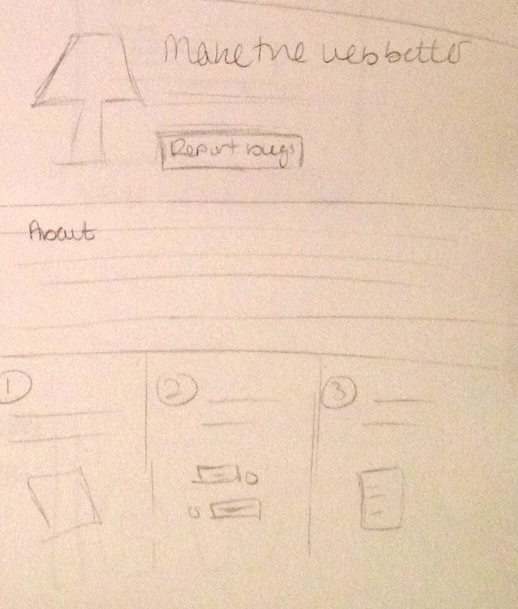 Make the web better
Report bugs
About
1 2 3